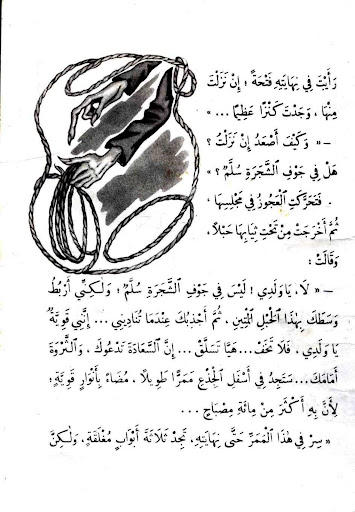 رَأَيْتَ فِي نِهَايَتِهِ فَتْحَةً ؛ إِنْ نَزَلْتَ
مِنْهَا ، وَجَدْتَ كَنْزًا عَظِيمًا ... »
– « وَكَيْفَ أَصْعَدُ إِنْ نَزَلْتُ ؟
هَلْ فِي جَوْفِ الشَّجَرَةِ سُلَّمٌ ؟ »
. فَتَحَرَّكَتِ الْعَجُوزُ فِي مَجْلِسِهَا ،
ثُمَّ أَخْرَجَتْ مِنْ تَحْتِ ثِيَابِهَا حَبْلًا ،
وَقَالَتْ :
– « لَا ، يَا وَلَدِي ؛ لَيْسَ فِي جَوْفِ الشَّجَرَةِ سُلَّمٌ ؛ وَلٰكِنِّي أَرْبُطُ
وَسَطَكَ بِهٰذَا الْحَبْلِ الْمَتِينِ . ثُمَّ أَجْذِبُكَ عِنْدَمَا تُنَادِينِي ... إِنَّنِي قَوِيَّةٌ
يَا وَلَدِي ، فَلَا تَخَفْ ... هَيَّا تَسَلَّقْ ... إِنَّ السَّعَادَةَ تَدْعُوكَ ، وَالثَّرْوَةَ
أَمَامَكَ ... سَتَجِدُ فِي أَسْفَلِ الْجِذْعِ مَمَرًّا طَوِيلًا ، مُضَاءً بِأَنْوَارٍ قَوِيَّةٍ ؛
لِأَنَّ بِهِ أَكْثَرَ مِنْ مِائَةِ مِصْبَاحٍ ...
« سِرْ فِي هٰذَا الْمَمَرِّ حَتَّى نِهَايَتِهِ ، تَجِدْ ثَلَاثَةَ أَبْوَابٍ مُغْلَقَةٍ ، وَلٰكِنَّ